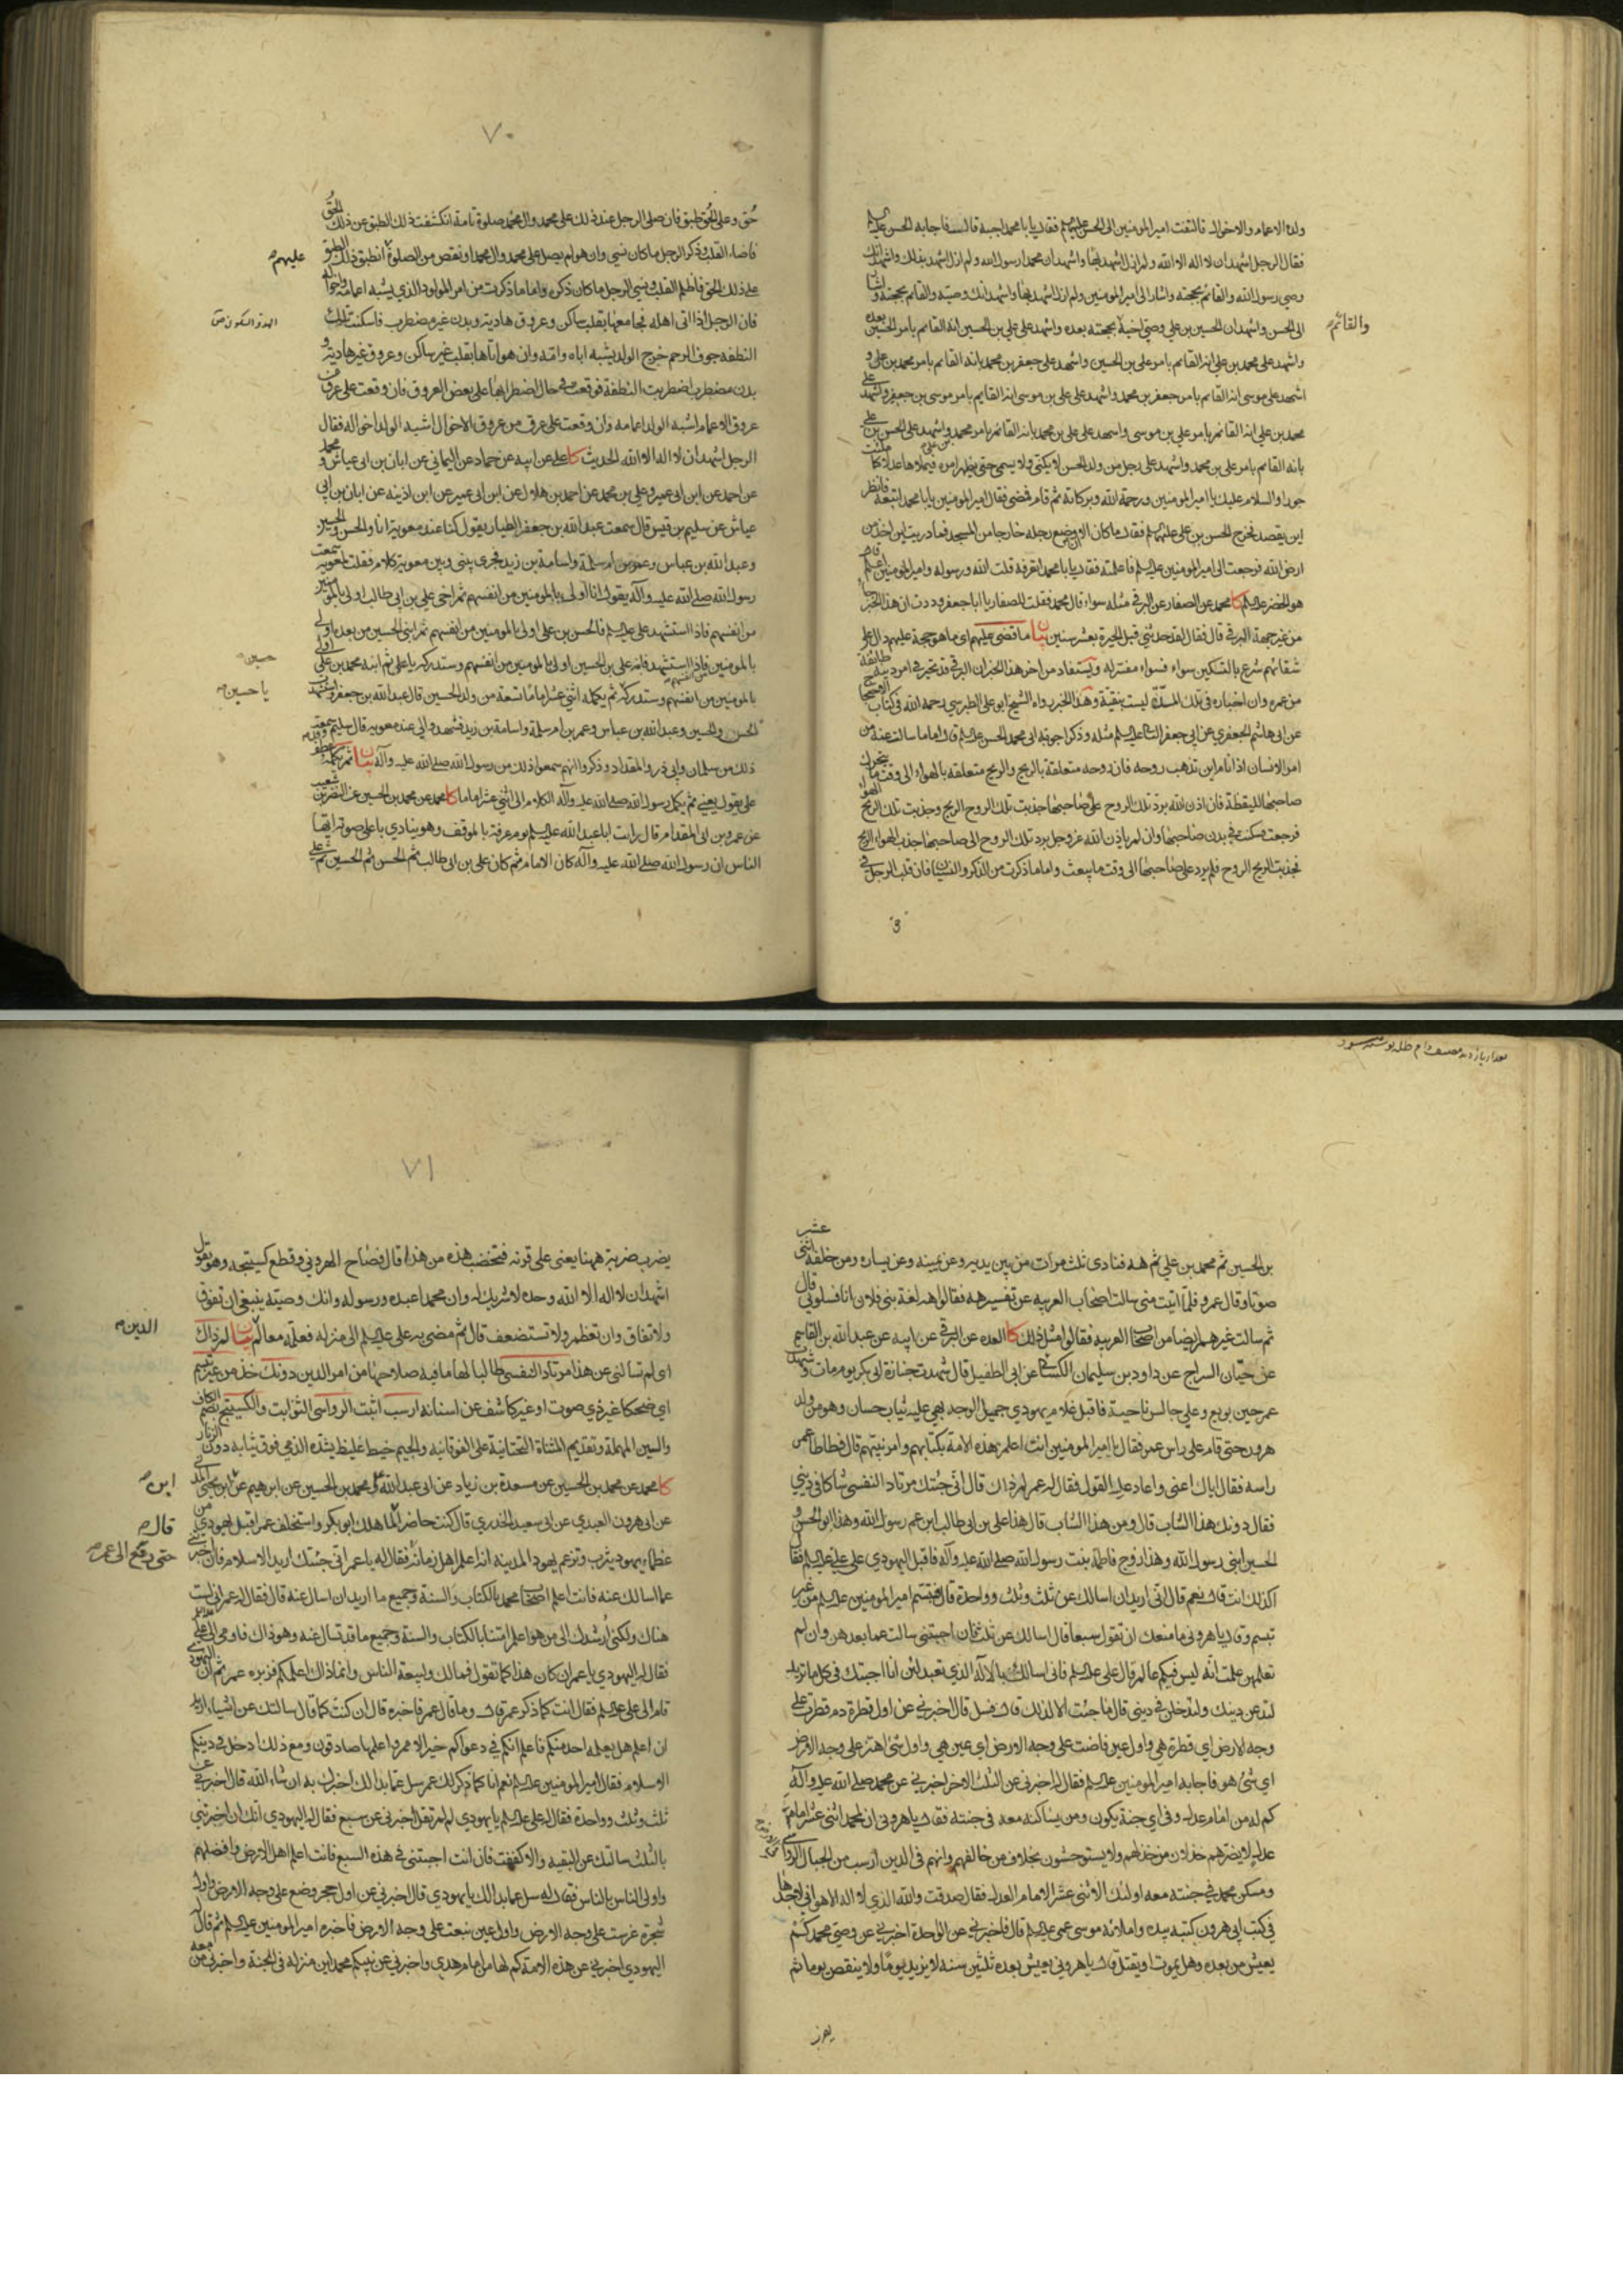 ولده الاعمام والاخوال قال فالتفت امير المؤمنين الى الحسن عليهما السلم فقال يابا محمد اجبه قال فاجابه الحسن عليه السلم
فقال الرجل اشهد ان لا اله الا الله ولم ازل اشهد بها واشهد ان محمدا رسول الله ولم ازل اشهد بذلك واشهد انك
وصي رسول الله والقائم بحجته واشار الى امير المؤمنين ولم ازل اشهد بها واشهد انك وصيه والقائم بحجته واشا
والقائم
الى الحسن واشهد ان الحسين بن علي وصي اخيه بحجته بعده واشهد على علي بن الحسين انه القائم بامر الحسين بعده
واشهد على محمد بن علي انه القائم بامر علي بن الحسين واشهد على جعفر بن محمد بانه القائم بامر محمد بن علي و
اشهد على موسى انه القائم بامر جعفر بن محمد واشهد على علي بن موسى انه القايم بامر موسى بن جعفر واشهد على
محمد بن علي انه القائم بامر علي بن موسى واشهد على علي بن محمد بانه القائم بامر محمد بن علي واشهد على الحسن بن علي
بانه القايم بامر علي بن محمد واشهد على رجل من ولد الحسن لا يكنى ولا يسمى حتى يظهر امره فيملاها عدلا كما ملئت
جورا والسلام عليك يا امير المؤمنين ورحمة الله وبركاته ثم قام فمضى فقال امير المؤمنين يابا محمد اتبعه فانظر
اين يقصد فخرج الحسن بن علي عليهما السلم فقال ما كان الا ان وضع رجله خارجا من المسجد فما دريت اين اخذ من
ارض الله فرجعت الى امير المؤمنين عليه السلم فاعلمته فقال يابا محمد اتعرفه قلت الله ورسوله وامير المؤمنين اعلم قال
هو الخضر عليه السلم كا محمد عن الصفار عن البرقي مثله سواء قال محمد فقلت للصفار يا ابا جعفر وددت ان هذا الخبر جاء
من غير جهة البرقي قال فقال لقد حدثني قبل الحيرة بعشر سنين بيان ما قضى عليهم اي ما هو حجة عليهم
من عمره وان اخباره في تلك المدة ليست بنقية وهذا الخبر رواه الشيخ ابو علي الطبرسي رحمه الله في كتاب الاحتجاج
عن ابي هاشم الجعفري عن ابي جعفر الثاني عليه السلم مثله وذكر اجوبة ابي محمد الحسن عليه السلم قال اما ما سالت عنه من
امر الانسان اذا نام اين تذهب روحه فان روحه متعلقة بالريح والريح متعلقة بالهواء الى وقت ما يتحرك
صاحبها لليقظة فان اذن الله برد تلك الروح على صاحبها جذبت تلك الروح الريح وجذبت تلك الريح الهواء
فرجعت فسكنت في بدن صاحبها وان لم ياذن الله عز وجل برد تلك الروح الى صاحبها جذب الهواء الريح
فجذبت الريح الروح فلم يرد على صاحبها الى وقت ما يبعث واما ما ذكرت من الذكر والنسيان فان قلب الرجل في
٧٠
حُق وعلى الحُق طبق فان صلى الرجل عند ذلك على محمد وال محمد صلوة تامة انكشفت ذلك الطبق عن ذلك الحُق
عليهم
فاضاء القلب وذكر الرجل ما كان نسي وان هو لم يصل على محمد وال محمد او نقص من الصلوة انطبق ذلك الطبق
على ذلك الحق فاظلم القلب ونسي الرجل ما كان ذكره واما ما ذكرت من امر المولود الذي يشبه اعمامه واخواله
فان الرجل اذا اتى اهله فجامعها بقلب ساكن وعروق هادية وبدن غير مضطرب فاسكنت تلك
النطفه جوف الرحم خرج الولد يشبه اباه وامه وان هو اتاها بقلب غير ساكن وعروق غير هادية و
بدن مضطرب اضطربت النطفة فوقعت في حال اضطرابها على بعض العروق فان وقعت على عرق من
عروق الاعمام اشبه الولد اعمامه وان وقعت على عرق من عروق الاخوال اشبه الولد اخواله فقال
الرجل اشهد ان لا اله الا الله الحديث كا علي عن ابيه عن حماد عن اليماني عن ابان بن ابي عياش و محمد
عن احمد عن ابن ابي عمير وعلي بن محمد عن احمد بن هلال عن ابن ابي عمير عن ابن اذينه عن ابان بن ابي
عياش عن سليم بن قيس قال سمعت عبد الله بن جعفر الطيار يقول كنا عند معوية انا والحسن والحسين
وعبد الله بن عباس وعمر بن ام سلمة واسامة بن زيد فجرى بيني وبين معوية كلام فقلت لمعوية سمعت
رسول الله صلى الله عليه وآله يقول انا اولى بالمؤمنين من انفسهم ثم اخي علي بن ابي طالب اولى بالمؤمنين
من انفسهم فاذا استشهد علي عليه السلم فالحسن بن علي اولى بالمؤمنين من انفسهم ثم ابني الحسين من بعده اولى
بالمؤمنين فاذا استشهد فابنه علي بن الحسين اولى بالمؤمنين من انفسهم وستدركه يا علي ثم ابنه محمد بن علي اولى
حسين
يا حسين
بالمؤمنين من انفسهم وستدركه ثم يكمله اثني عشر اماما تسعة من ولد الحسين قال عبد الله بن جعفر واستشهدت
الحسن والحسين وعبد الله بن عباس وعمر بن ام سلمة واسامة بن زيد فشهدوا لي عند معوية قال سليم وقد سمعت
ذلك من سلمان وابي ذر والمقداد وذكروا انهم سمعوا ذلك من رسول الله صلى الله عليه وآله بيان ثم تكمله
على يقول يعني ثم يكمل رسول الله صلى الله عليه وآله الكلام الى اثني عشر اماما كا محمد عن محمد بن الحسين عن النضر بن شعيب
عن عمرو بن ابي المقدام قال رايت ابا عبد الله عليه السلم يوم عرفة بالموقف وهو ينادي باعلى صوته ايها
الناس ان رسول الله صلى الله عليه وآله كان الامام ثم كان علي بن ابي طالب ثم الحسن ثم الحسين ثم علي
بن الحسين ثم محمد بن علي ثم هه فنادى ثلث مرات من بين يديه وعن يمينه وعن يساره ومن خلفه اثنى عشر
صوتا وقال عمرو فلما اتيت منى سالت اصحاب العربيه عن تفسير هه فقالوا هه لغة بني فلان انا فسلوني قال
ثم سالت غيرهم ايضا من اصحاب العربيه فقالوا مثل ذلك كا العده عن البرقي عن ابيه عن عبد الله بن القاسم
عن حيان السراج عن داود بن سليمان الكسائي عن ابي الطفيل قال شهدت جنازة ابي بكر يوم مات وشهدت
عمر حين بويع وعلي جالس ناحية فاقبل غلام يهودي جميل الوجه بهي عليه ثياب حسان وهو من ولد
هرون حتى قام على راس عمر فقال يا امير المؤمنين انت اعلم هذه الامة بكتابهم وامر نبيهم قال فطاطا عمر
راسه فقال اياك اعني واعاد عليه القول فقال له عمر لم ذاك قال اني جئتك مرتادا لنفسي شاكا في ديني
فقال دونك هذا الشاب قال ومن هذا الشاب قال هذا علي بن ابي طالب ابن عم رسول الله وهذا ابو الحسن و
الحسين ابني رسول الله وهذا زوج فاطمة بنت رسول الله صلى الله عليه وآله فاقبل اليهودي على علي عليه السلم فقال
اكذلك انت قال نعم قال اني اريد ان اسالك عن ثلث وثلث وواحدة قال فتبسم امير المؤمنين عليه السلم من غير
تبسم وقال يا هروني ما منعك ان تقول سبعا قال اسالك عن ثلث فان اجبتني سالت عما بعدهن وان لم
تعلمهن علمت انه ليس فيكم عالم قال علي عليه السلم فاني اسالك بالاله الذي تعبد لئن انا اجبتك في كل ما تريد
لتدعن دينك ولتدخلن في ديني قال ما جئت الا لذلك قال فسل قال اخبرني عن اول قطرة دم قطرت على
وجه الارض اي قطرة هي واول عين فاضت على وجه الارض اي عين هي واول شئ اهتز على وجه الارض
اي شئ هو فاجابه امير المؤمنين عليه السلم فقال له اخبرني عن الثلث الاخر اخبرني عن محمد صلى الله عليه وآله
كم له من امام عدل وفي اي جنة يكون ومن يساكنه معه في جنته فقال يا هروني ان لمحمد اثنى عشر امام
عدل لا يضرهم خذلان من خذلهم ولا يستوحشون بخلاف من خالفهم وانهم في الدين ارسب من الجبال الرواسي
ومسكن محمد في جنته معه اولئك الاثنى عشر الامام العدل فقال صدقت والله الذي لا اله الا هو اني لاجدها
في كتب ابي هرون كتبه بيده واملائه موسى عمي عليه السلم قال فاخبرني عن الواحدة اخبرني عن وصي محمد كم
يعيش من بعده وهل يموت او يقتل قال يا هروني يعيش بعده ثلثين سنه لا يزيد يوما ولا ينقص يوما ثم
٧١
يضرب ضربة ههنا يعني على قرنه فتخضب هذه من هذا قال فصاح الهروني وقطع كستيجه وهو يقول
اشهد ان لا اله الا الله وحده لا شريك له وان محمدا عبده ورسوله وانك وصيه ينبغي ان تفوق
الدين
ولا تفاق وان تعظم ولا تستضعف قال ثم مضى به علي عليه السلم الى منزله فعلمه معالم بيان لم ذاك
اي لم تسالني عن هذا مرتادا لنفسي طالبا لها ما فيه صلاحها من امر الدين دونك خذ من غير تبسم
اي ضحكا غير ذي صوت او غير كاشف عن اسنانه ارسب اثبت الرواسي الثوابت والكستيج بضم الكاف
والسين المهملة وتقديم المثناة التحتانية على الفوقانية والجيم خيط غليظ يشده الذمي فوق ثيابه دون الزنار
كا محمد عن محمد بن الحسين عن مسعدة بن زياد عن ابي عبد الله ومحمد بن الحسين عن ابرهيم عن ابي يحيى المدني
ابن
عن ابي هرون العبدي عن ابي سعيد الخدري قال كنت حاضرا لما هلك ابو بكر واستخلف عمر اقبل يهودي من
قال
حتى رفع الى عمر
عظماء يهود يثرب وتزعم يهود المدينه انه اعلم اهل زمانه فقال له يا عمر اني جئتك اريد الاسلام فان اخبرتني
عما اسالك عنه فانت اعلم اصحاب محمد بالكتاب والسنة وجميع ما اريد ان اسال عنه قال فقال له عمر اني لست
هناك ولكني ارشدك الى من هو اعلم امتنا بالكتاب والسنة وجميع ما قد تسال عنه وهو ذاك فاومى الى علي عليه السلم
فقال له اليهودي يا عمر ان كان هذا كما تقول فمالك ولبيعة الناس وانما ذاك اعلمكم فزبره عمر ثم ان اليهودي
قام الى علي عليه السلم فقال انت كما ذكر عمر قال وما قال عمر فاخبره قال ان كنت كما قال سالتك عن اشياء اريد
ان اعلم هل يعلمه احد منكم فاعلم انكم في دعواكم خير الامم واعلمها صادقون ومع ذلك ادخل في دينكم
الاسلام فقال امير المؤمنين عليه السلم نعم انا كما ذكر لك عمر سل عما بدا لك اخبرك به ان شاء الله قال اخبرني عن
ثلث وثلث وواحدة فقال له علي عليه السلم يا يهودي لم لم تقل اخبرني عن سبع فقال له اليهودي انك ان اخبرتني
بالثلث سالتك عن البقيه والا كففت فان انت اجبتني في هذه السبع فانت اعلم اهل الارض وافضلهم
واولى الناس بالناس فقال له سل عما بدا لك يا يهودي قال اخبرني عن اول حجر وضع على وجه الارض واول
شجرة غرست على وجه الارض واول عين نبعت على وجه الارض فاخبره امير المؤمنين عليه السلم ثم قال له
اليهودي اخبرني عن هذه الامة كم لها من امام هدى واخبرني عن نبيكم محمد اين منزله في الجنة واخبرني من معه